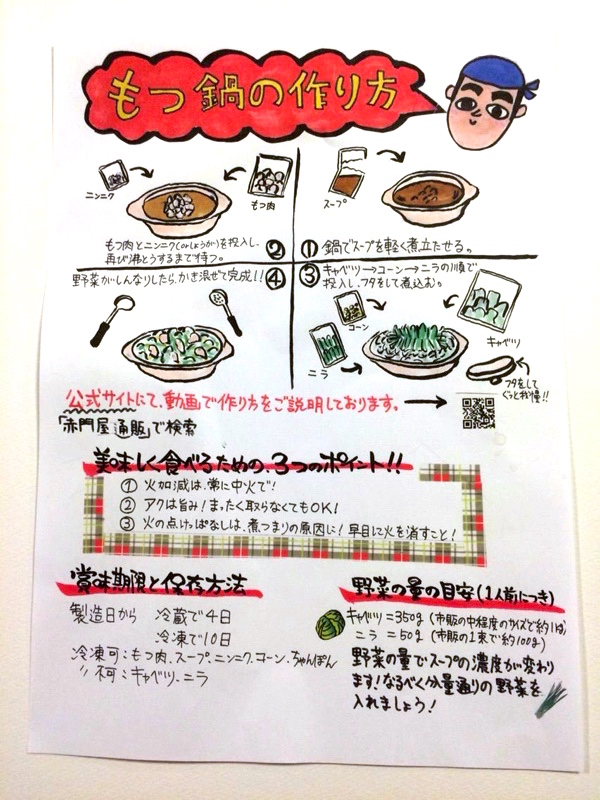 もつ鍋の作り方
スープ
①鍋でスープを軽く煮立たせる。
ニンニク
もつ肉
もつ肉とニンニク(orしょうが)を投入し、
再び沸とうするまで待つ。
②
③キャベツ→コーン→ニラの順で
投入し、フタをして煮込む。
コーン
ニラ
キャベツ
フタをして
ぐっと我慢!!
野菜がしんなりしたら、かき混ぜて完成!!④
公式サイトにて、動画で作り方をご説明しております。→
「赤門屋通販」で検索
美味しく食べるための、3つのポイント!!
① 火加減は、常に中火で!
② アクは旨み!まったく取らなくてもOK!
③ 火の点けっぱなしは、煮つまりの原因に!早目に火を消すこと!
賞味期限と保存方法
製造日から 冷蔵で4日
冷凍で10日
冷凍可:もつ肉、スープ、ニンニク、コーン、ちゃんぽん
〃不可:キャベツ、ニラ
野菜の量の目安(1人前につき)
キャベツ=350g(市販の中程度のサイズで約1kg)
ニラ=50g(市販の1束で約100g)
野菜の量でスープの濃度が変わり
ます!なるべく分量通りの野菜を
入れましょう!